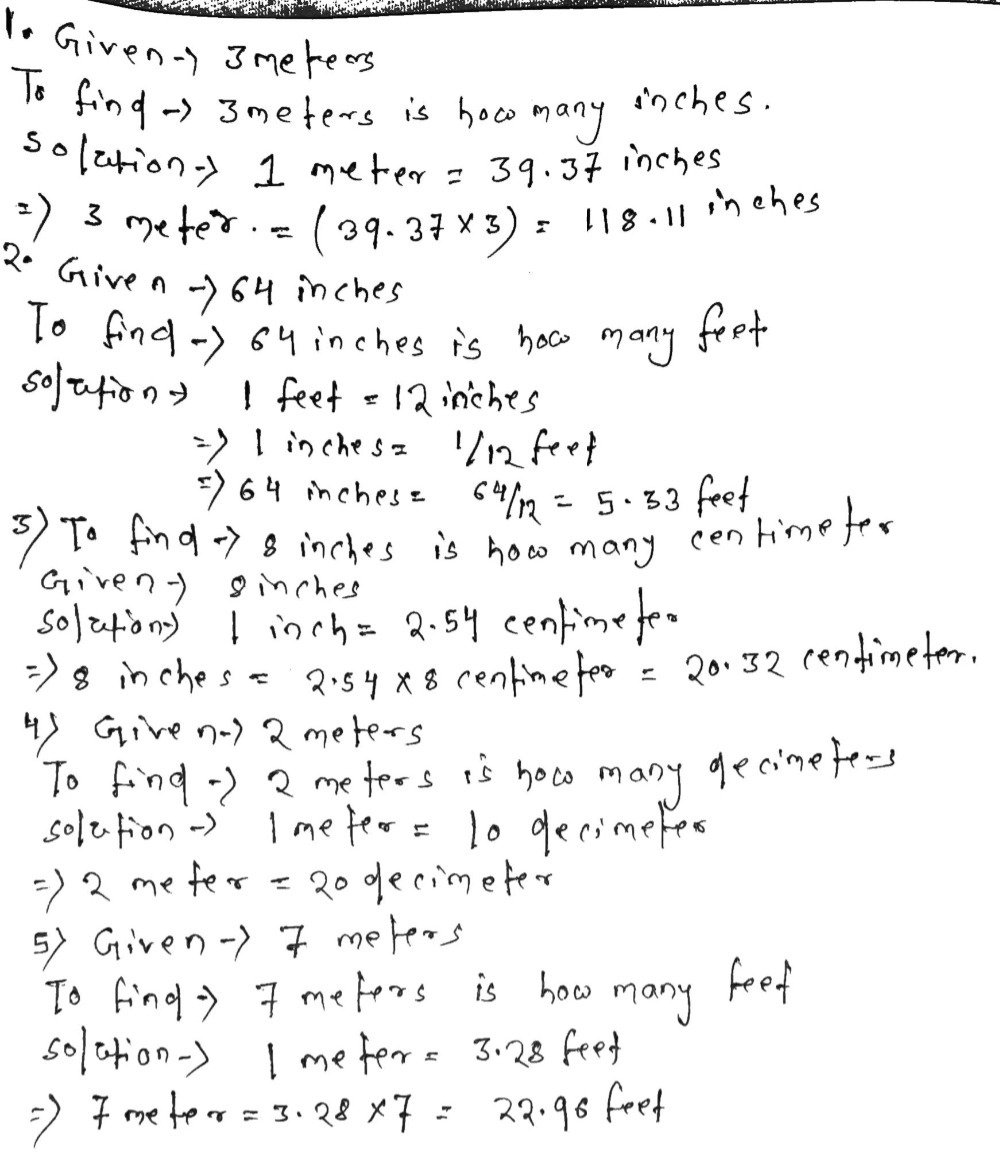 1. Given → 3 meters
To find → 3 meters is how many inches.
Solution → 1 meter = 39.37 inches
=> 3 meter. = (39.37 x 3) = 118.11 inches
2. Given → 64 inches
To find → 64 inches is how many feet
solution → 1 feet = 12 inches
=> 1 inches = 1/12 feet
=> 64 inches = 64/12 = 5.33 feet
3) To find → 8 inches is how many centimeter
Given → 8 inches
solution → 1 inch = 2.54 centimeter
=> 8 inches = 2.54 x 8 centimeter = 20.32 centimeter.
4) Given → 2 meters
To find → 2 meters is how many decimeters
solution → 1 meter = 10 decimeter
=> 2 meter = 20 decimeter
5) Given → 7 meters
To find → 7 meters is how many feet
solution → 1 meter = 3.28 feet
=> 7 meter = 3.28 x 7 = 22.96 feet